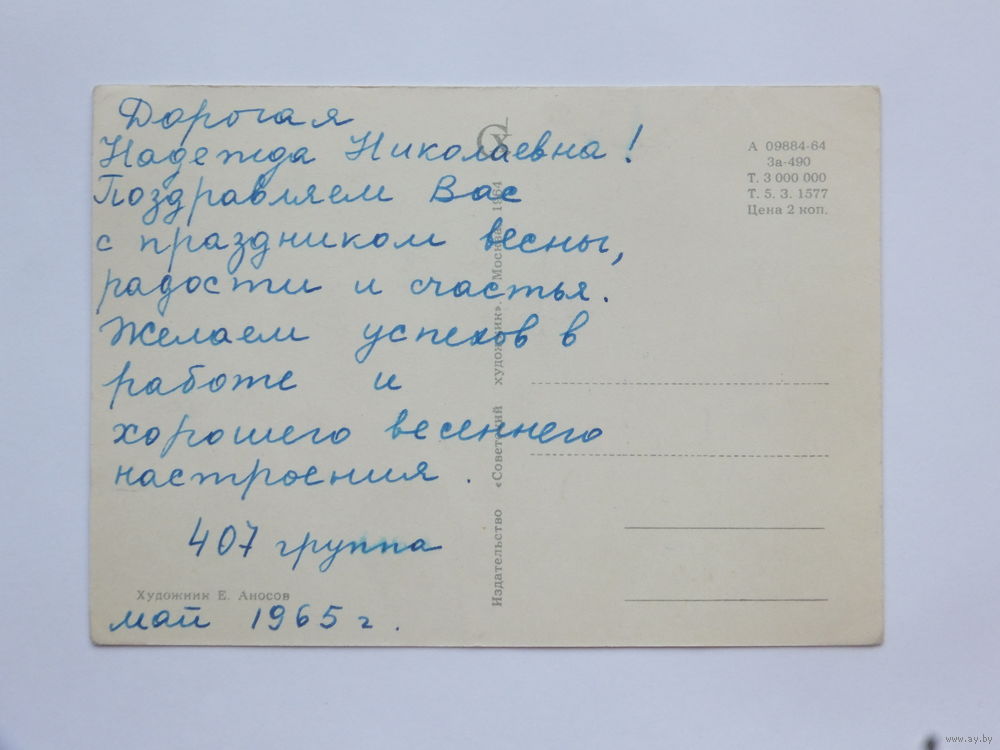 Дорогая
Надежда Николаевна!
Поздравляем Вас
с праздником весны,
радости и счастья.
Желаем успехов в
работе и
хорошего весеннего
настроения.
407 группа
Художник Е. Аносов
май 1965 г.
Издательство «Советский художник». Москва 1964
СХ
А 09884-64
За-490
Т. 3 000 000
Т. 5. З. 1577
Цена 2 коп.
www.ay.by